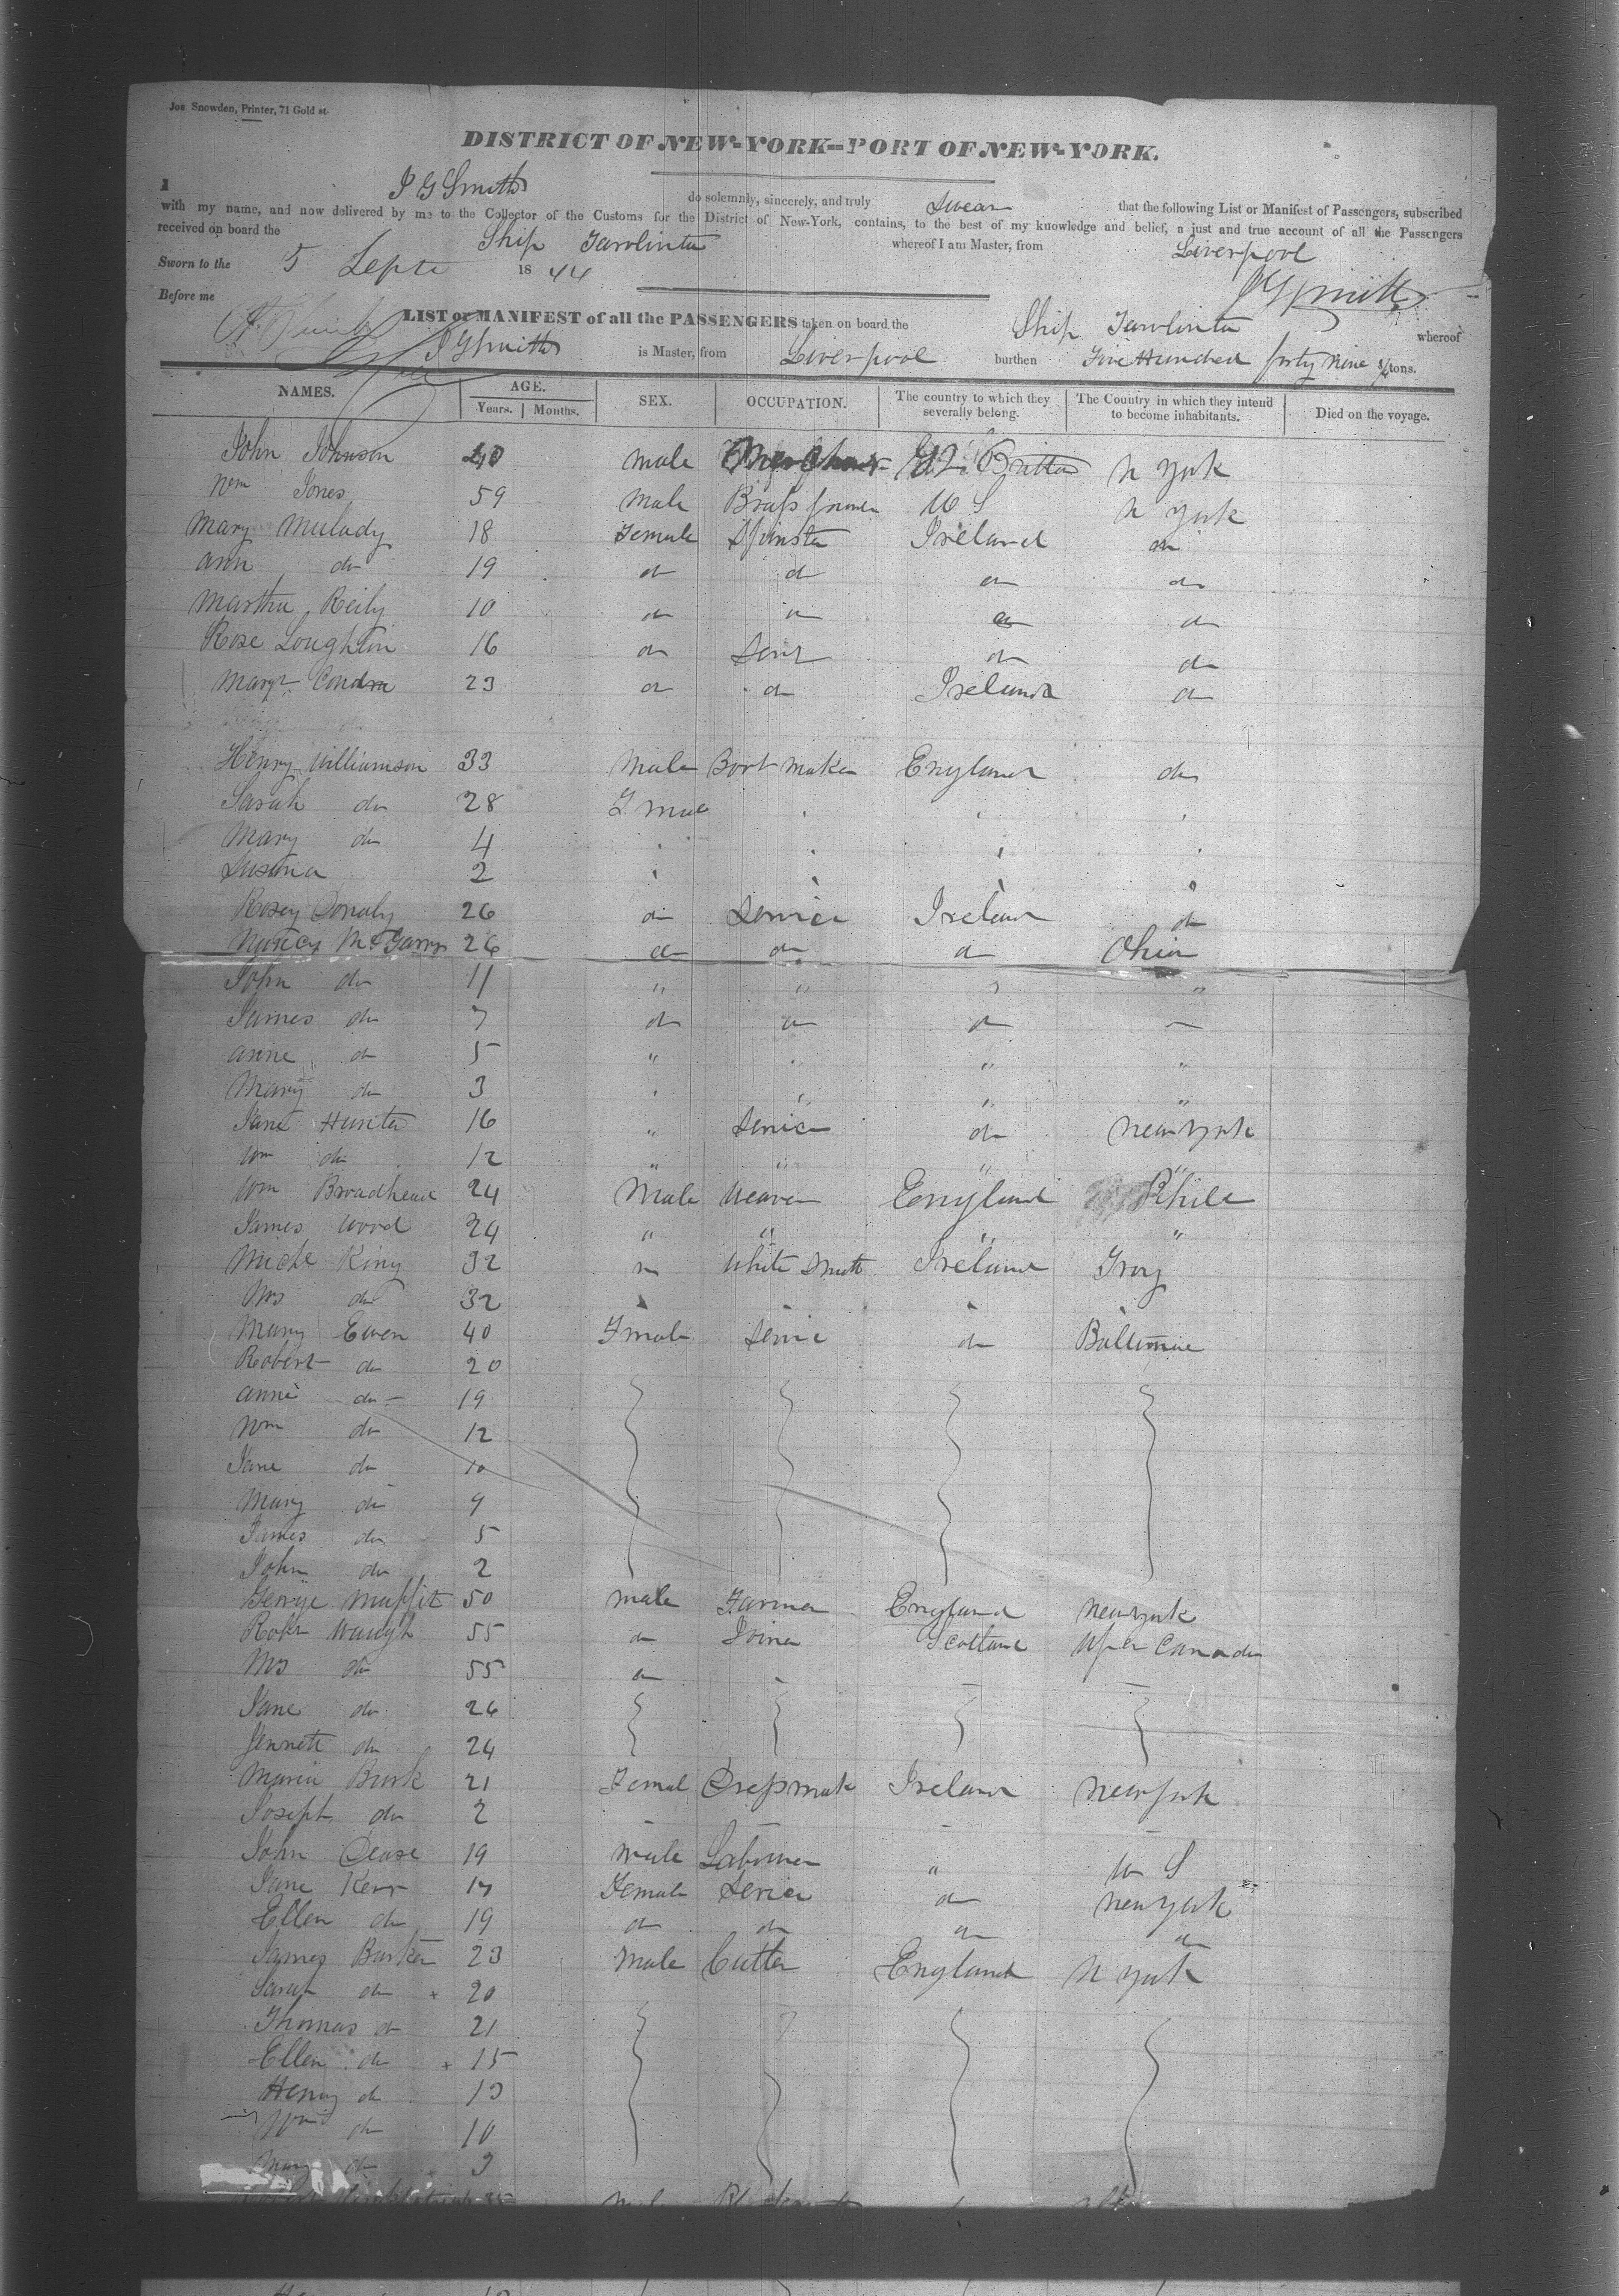 Jos Snowden, Printer, 71 Gold st.
DISTRICT OF NEW-YORK--PORT OF NEW-YORK.
I J G Smith do solemnly, sincerely, and truly Swear that the following List or Manifest of Passengers, subscribed
with my name, and now delivered by me to the Collector of the Customs for the District of New-York, contains, to the best of my knowledge and belief, a just and true account of all the Passengers
received on board the Ship Tarolinta whereof I am Master, from Liverpool
Sworn to the 5 Septe 1844 J G Smith
Before me
LIST or MANIFEST of all the PASSENGERS taken on board the Ship Tarolinta whereof
J G Smith is Master, from Liverpool burthen Five Hundred forty nine tons.
NAMES. AGE. SEX. OCCUPATION. The country to which they severally belong. The Country in which they intend to become inhabitants. Died on the voyage.
Years. Months.
John Johnson 40 male Gt Britta N York
Wm Jones 59 Male Brass U S N York
Mary Mulady 18 Female Spinster Ireland do
Ann do 19 do do do do
Martha Reily 10 do do do do
Rose Loughlin 16 do Servt do do
Margt 23 do do Ireland do
Henry Williamson 33 Male Boot maker England do
Sarah do 28 F male
Mary do 4
Susana 2
Rosey Conaly 26 do Service Ireland do
Nancy McGarry 26 do do do Ohio
John do 11 " " " "
James do 7 do do do
Anne do 5 " " " "
Mary do 3 " " "
Jane Hunter 16 " Service do New York
Wm do 12 " " " "
Wm Broadhead 24 Male Weaver England Phile
James Wood 24 " " " "
Michl King 32 m White Smith Ireland Troy
Mrs do 32
Mary Ewen 40 Fmale Servic do Baltimore
Robert do 20
Anne do 19
Wm do 12
Jane do 10
Mary do 9
James do 5
John do 2
George Maffit 50 male Farmer England New York
Robt Waugh 55 do Joiner Scotland Uper Canada
Mrs do 55 do
Jane do 26
Jennett do 24
Maria Burk 21 Femal Dressmak Ireland New York
Joseph do 2
John Dease 19 male Labourer " U S
Jane Kerr 17 Female Service do New York
Ellen do 19 do do do do
James Barker 23 Male Cutter England N York
Sarah do + 20
Thomas do 21
Ellen do + 15
Henry do 13
Wm do 10
Mary do 3
35